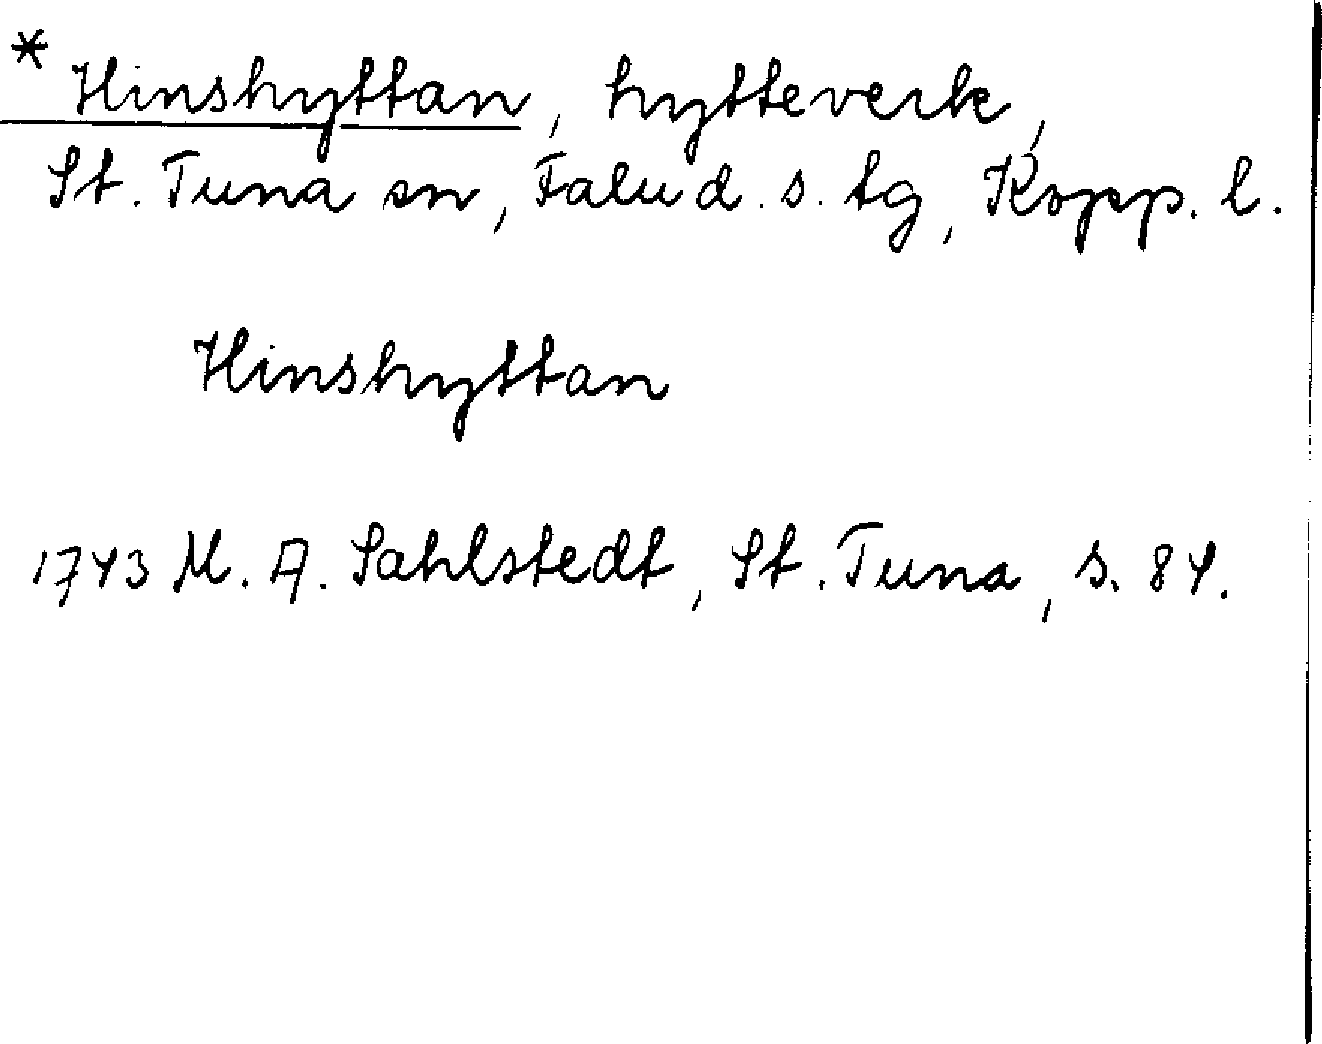 * Hinshyttan, hytteverk,
St. Tuna sn, Falu d. s. tg, Kopp. l.
Hinshyttan
1743 M. A. Sahlstedt, St. Tuna, s. 84.